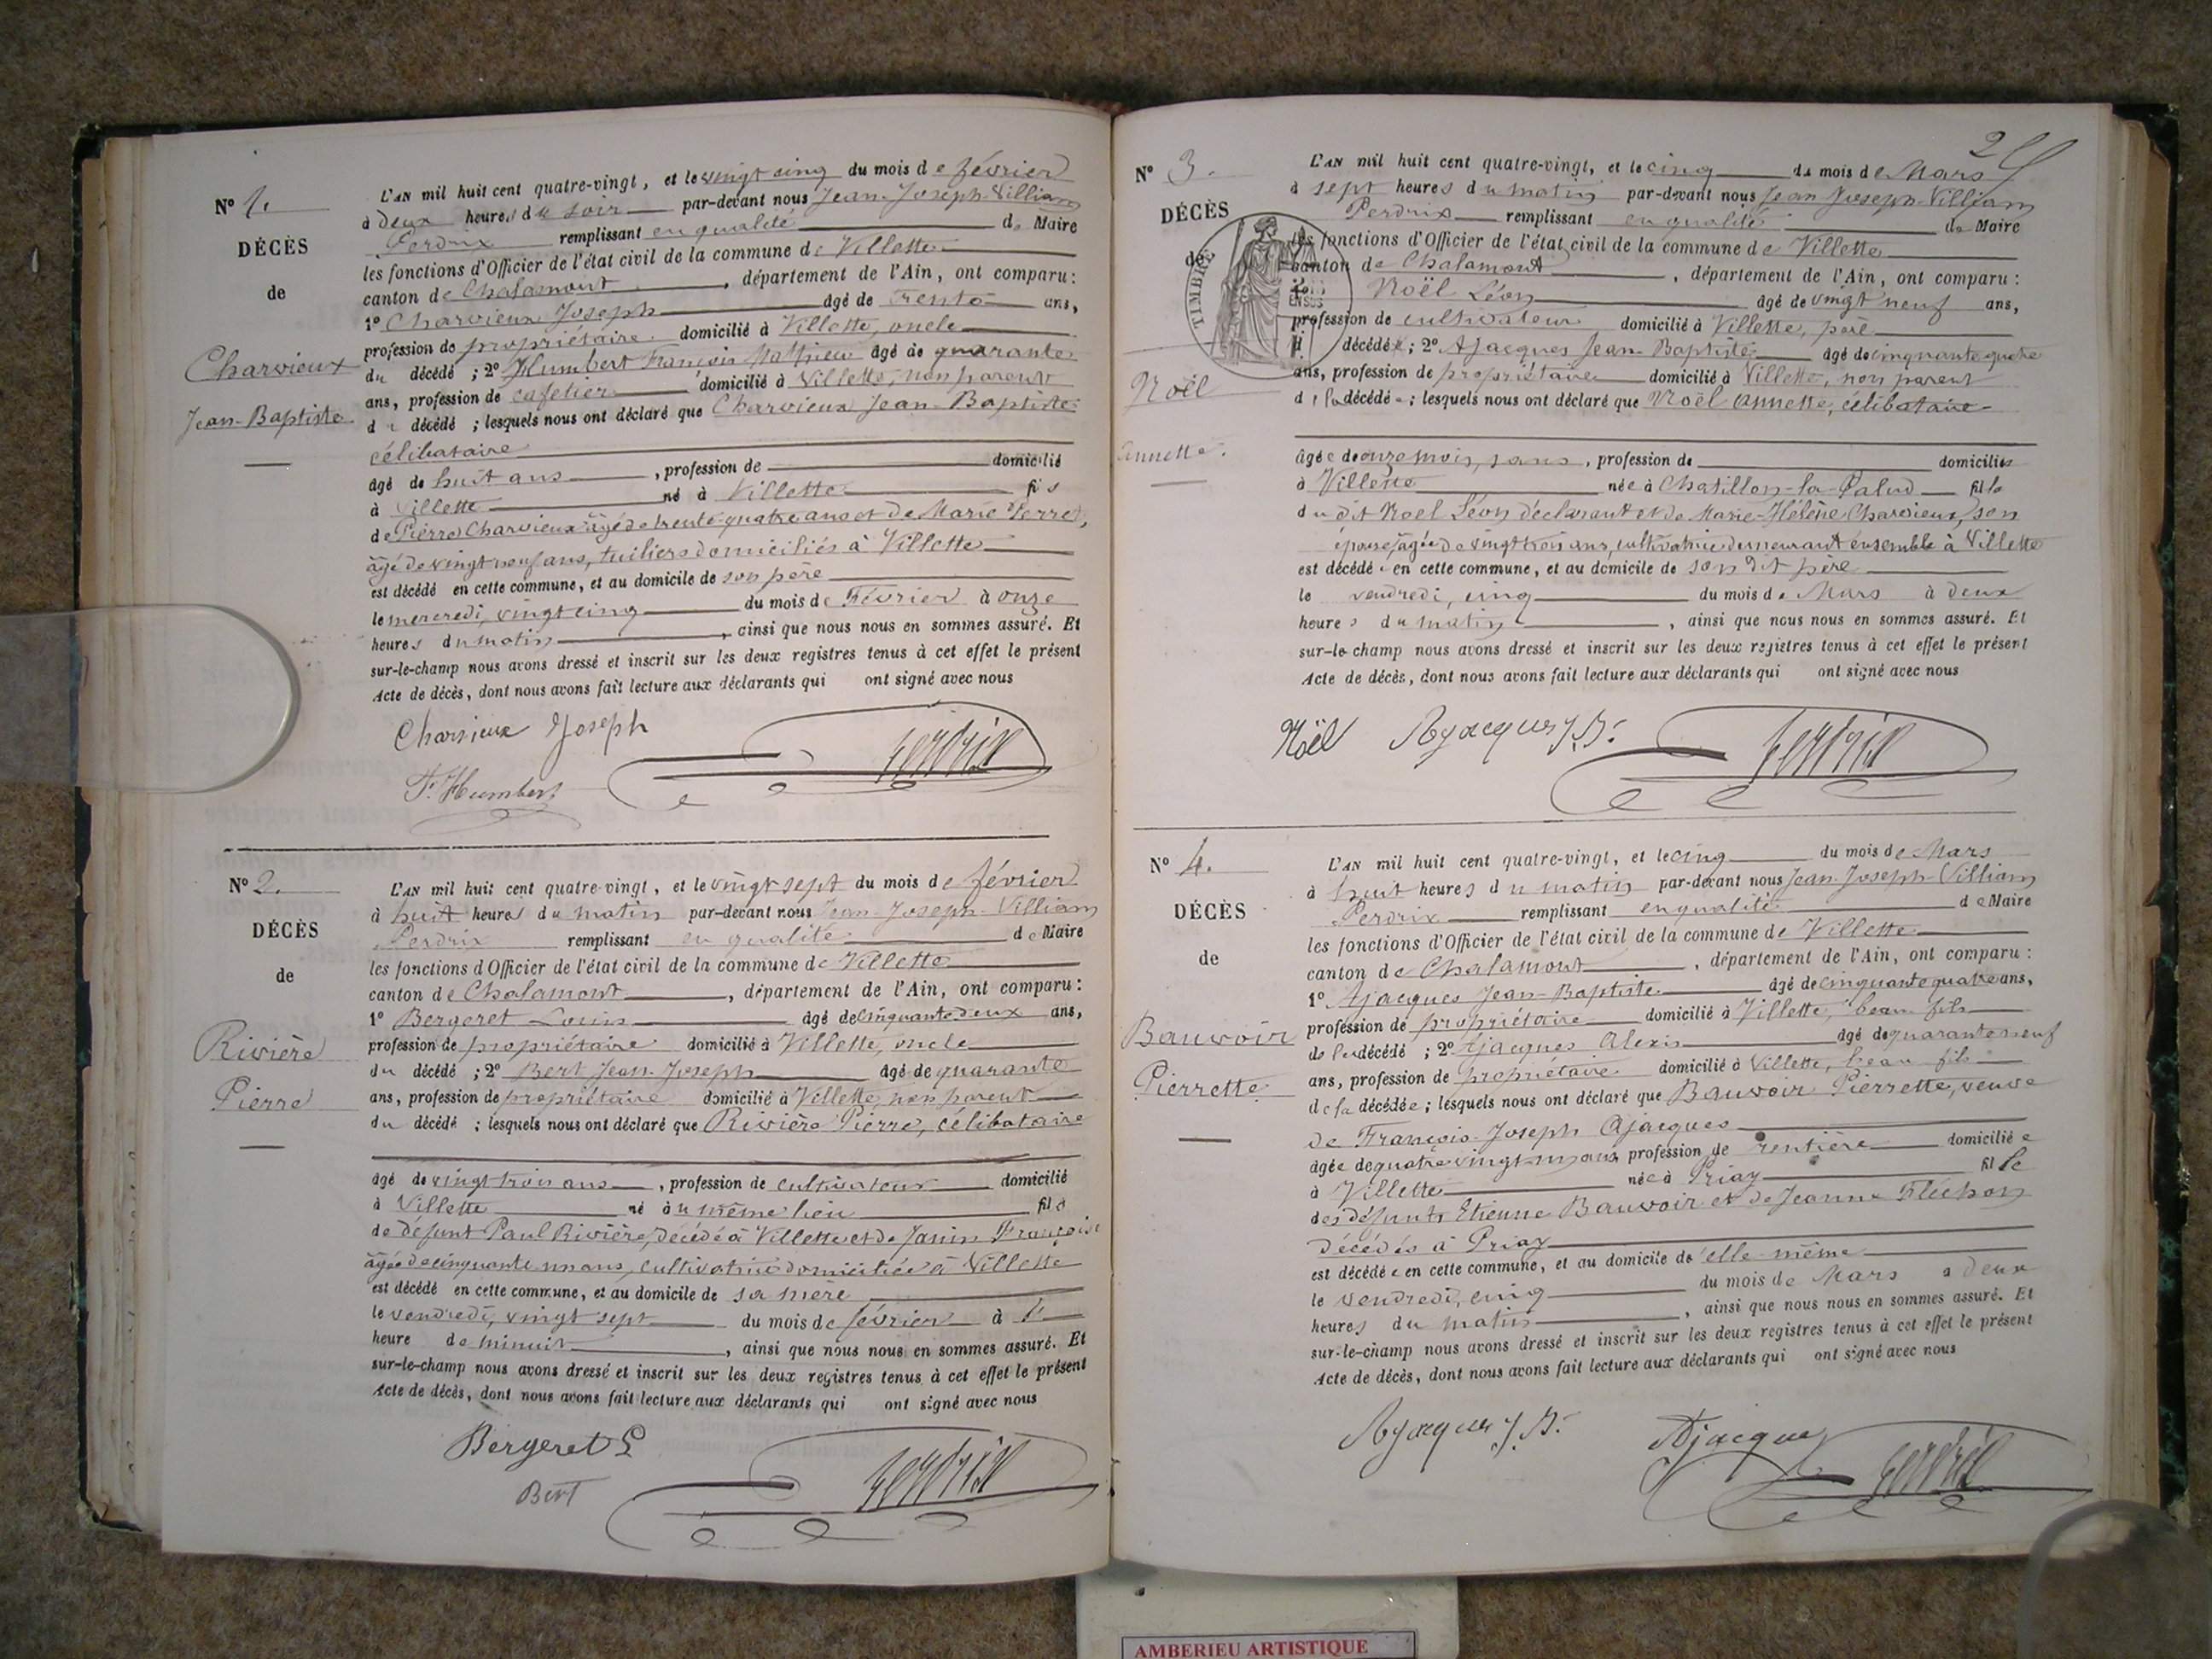 N° 1.
DÉCÈS
de
Charvieux
Jean-Baptiste
L'AN mil huit cent quatre-vingt, et le vingt cinq du mois de février
à deux heures du soir par-devant nous Jean-Joseph-Villiam
Perdrix remplissant en qualité de Maire
les fonctions d'Officier de l'état civil de la commune de Villette
canton de Chalamont, département de l'Ain, ont comparu :
1° Charvieux Joseph âgé de trente ans,
profession de propriétaire domicilié à Villette, oncle
du décédé ; 2° Humbert François Mathieu âgé de quarante
ans, profession de cafetier domicilié à Villette, non parent
du décédé ; lesquels nous ont déclaré que Charvieux Jean-Baptiste
célibataire
âgé de huit ans, profession de domicilié
à Villette né à Villette fils
de Pierre Charvieux âgé de trente-quatre ans et de Marie Perret,
âgé de vingt neuf ans, tuiliers domiciliés à Villette
est décédé en cette commune, et au domicile de son père
le mercredi, vingt cinq du mois de Février à onze
heures du matin, ainsi que nous nous en sommes assuré. Et
sur-le-champ nous avons dressé et inscrit sur les deux registres tenus à cet effet le présent
Acte de décès, dont nous avons fait lecture aux déclarants qui ont signé avec nous
Charvieux Joseph
Perdrix
F. Humbert
N° 2.
DÉCÈS
de
Rivière
Pierre
L'AN mil huit cent quatre-vingt, et le vingt sept du mois de février
à huit heures du matin par-devant nous Jean-Joseph-Villiam
Perdrix remplissant en qualité de Maire
les fonctions d'Officier de l'état civil de la commune de Villette
canton de Chalamont, département de l'Ain, ont comparu :
1° Bergeret Louis âgé de cinquante deux ans,
profession de propriétaire domicilié à Villette, oncle
du décédé ; 2° Bert Jean-Joseph âgé de quarante
ans, profession de propriétaire domicilié à Villette, non parent
du décédé ; lesquels nous ont déclaré que Rivière Pierre, célibataire
âgé de vingt trois ans, profession de cultivateur domicilié
à Villette né au même lieu fils
de défunt Paul Rivière, décédé à Villette et de Janin Françoise
âgée de cinquante un ans, cultivatrice domiciliée à Villette
est décédé en cette commune, et au domicile de sa mère
le vendredi, vingt sept du mois de février à
heure de minuit, ainsi que nous nous en sommes assuré. Et
sur-le-champ nous avons dressé et inscrit sur les deux registres tenus à cet effet le présent
Acte de décès, dont nous avons fait lecture aux déclarants qui ont signé avec nous
Bergeret L
Bert
Perdrix
N° 3.
DÉCÈS
de
TIMBRE
Noël
Annette.
L'AN mil huit cent quatre-vingt, et le cinq du mois de Mars
à sept heures du matin par-devant nous Jean Joseph-Villiam
Perdrix remplissant en qualité de Maire
les fonctions d'Officier de l'état civil de la commune de Villette
canton de Chalamont, département de l'Ain, ont comparu :
Noël Léon âgé de vingt neuf ans,
profession de cultivateur domicilié à Villette, père
décédée ; 2° Ajacques Jean-Baptiste âgé de cinquante quatre
ans, profession de propriétaire domicilié à Villette, non parent
de la décédée ; lesquels nous ont déclaré que Noël Annette, célibataire
âgée de onze mois, sans, profession de domiciliée
à Villette née à Chatillon-la-Palud fille
du dit Noël Léon déclarant et de Marie-Hélène Charvieux, son
épouse, âgée de vingt trois ans, cultivatrice demeurant ensemble à Villette
est décédée en cette commune, et au domicile de son dit père
le vendredi, cinq du mois de Mars à deux
heures du matin, ainsi que nous nous en sommes assuré. Et
sur-le-champ nous avons dressé et inscrit sur les deux registres tenus à cet effet le présent
Acte de décès, dont nous avons fait lecture aux déclarants qui ont signé avec nous
Noël Ajacques J.B. Perdrix
N° 4.
DÉCÈS
de
Bauvoir
Pierrette
L'AN mil huit cent quatre-vingt, et le cinq du mois de Mars
à huit heures du matin par-devant nous Jean-Joseph-Villiam
Perdrix remplissant en qualité de Maire
les fonctions d'Officier de l'état civil de la commune de Villette
canton de Chalamont, département de l'Ain, ont comparu :
1° Ajacques Jean-Baptiste âgé de cinquante quatre ans,
profession de propriétaire domicilié à Villette, beau fils
de la décédé ; 2° Ajacques Alexis âgé de quarante neuf
ans, profession de propriétaire domicilié à Villette, beau fils
de la décédée ; lesquels nous ont déclaré que Bauvoir Pierrette, veuve
de François-Joseph Ajacques
âgée de quatre vingt un ans profession de rentière domiciliée
à Villette née à Priay fille
des défunts Etienne Bauvoir et de Jeanne Fléchon
décédés à Priay
est décédée en cette commune, et au domicile de elle-même
le vendredi, cinq du mois de Mars à deux
heures du matin, ainsi que nous nous en sommes assuré. Et
sur-le-champ nous avons dressé et inscrit sur les deux registres tenus à cet effet le présent
Acte de décès, dont nous avons fait lecture aux déclarants qui ont signé avec nous
Ajacques J.B. Ajacques Perdrix
AMBERIEU ARTISTIQUE